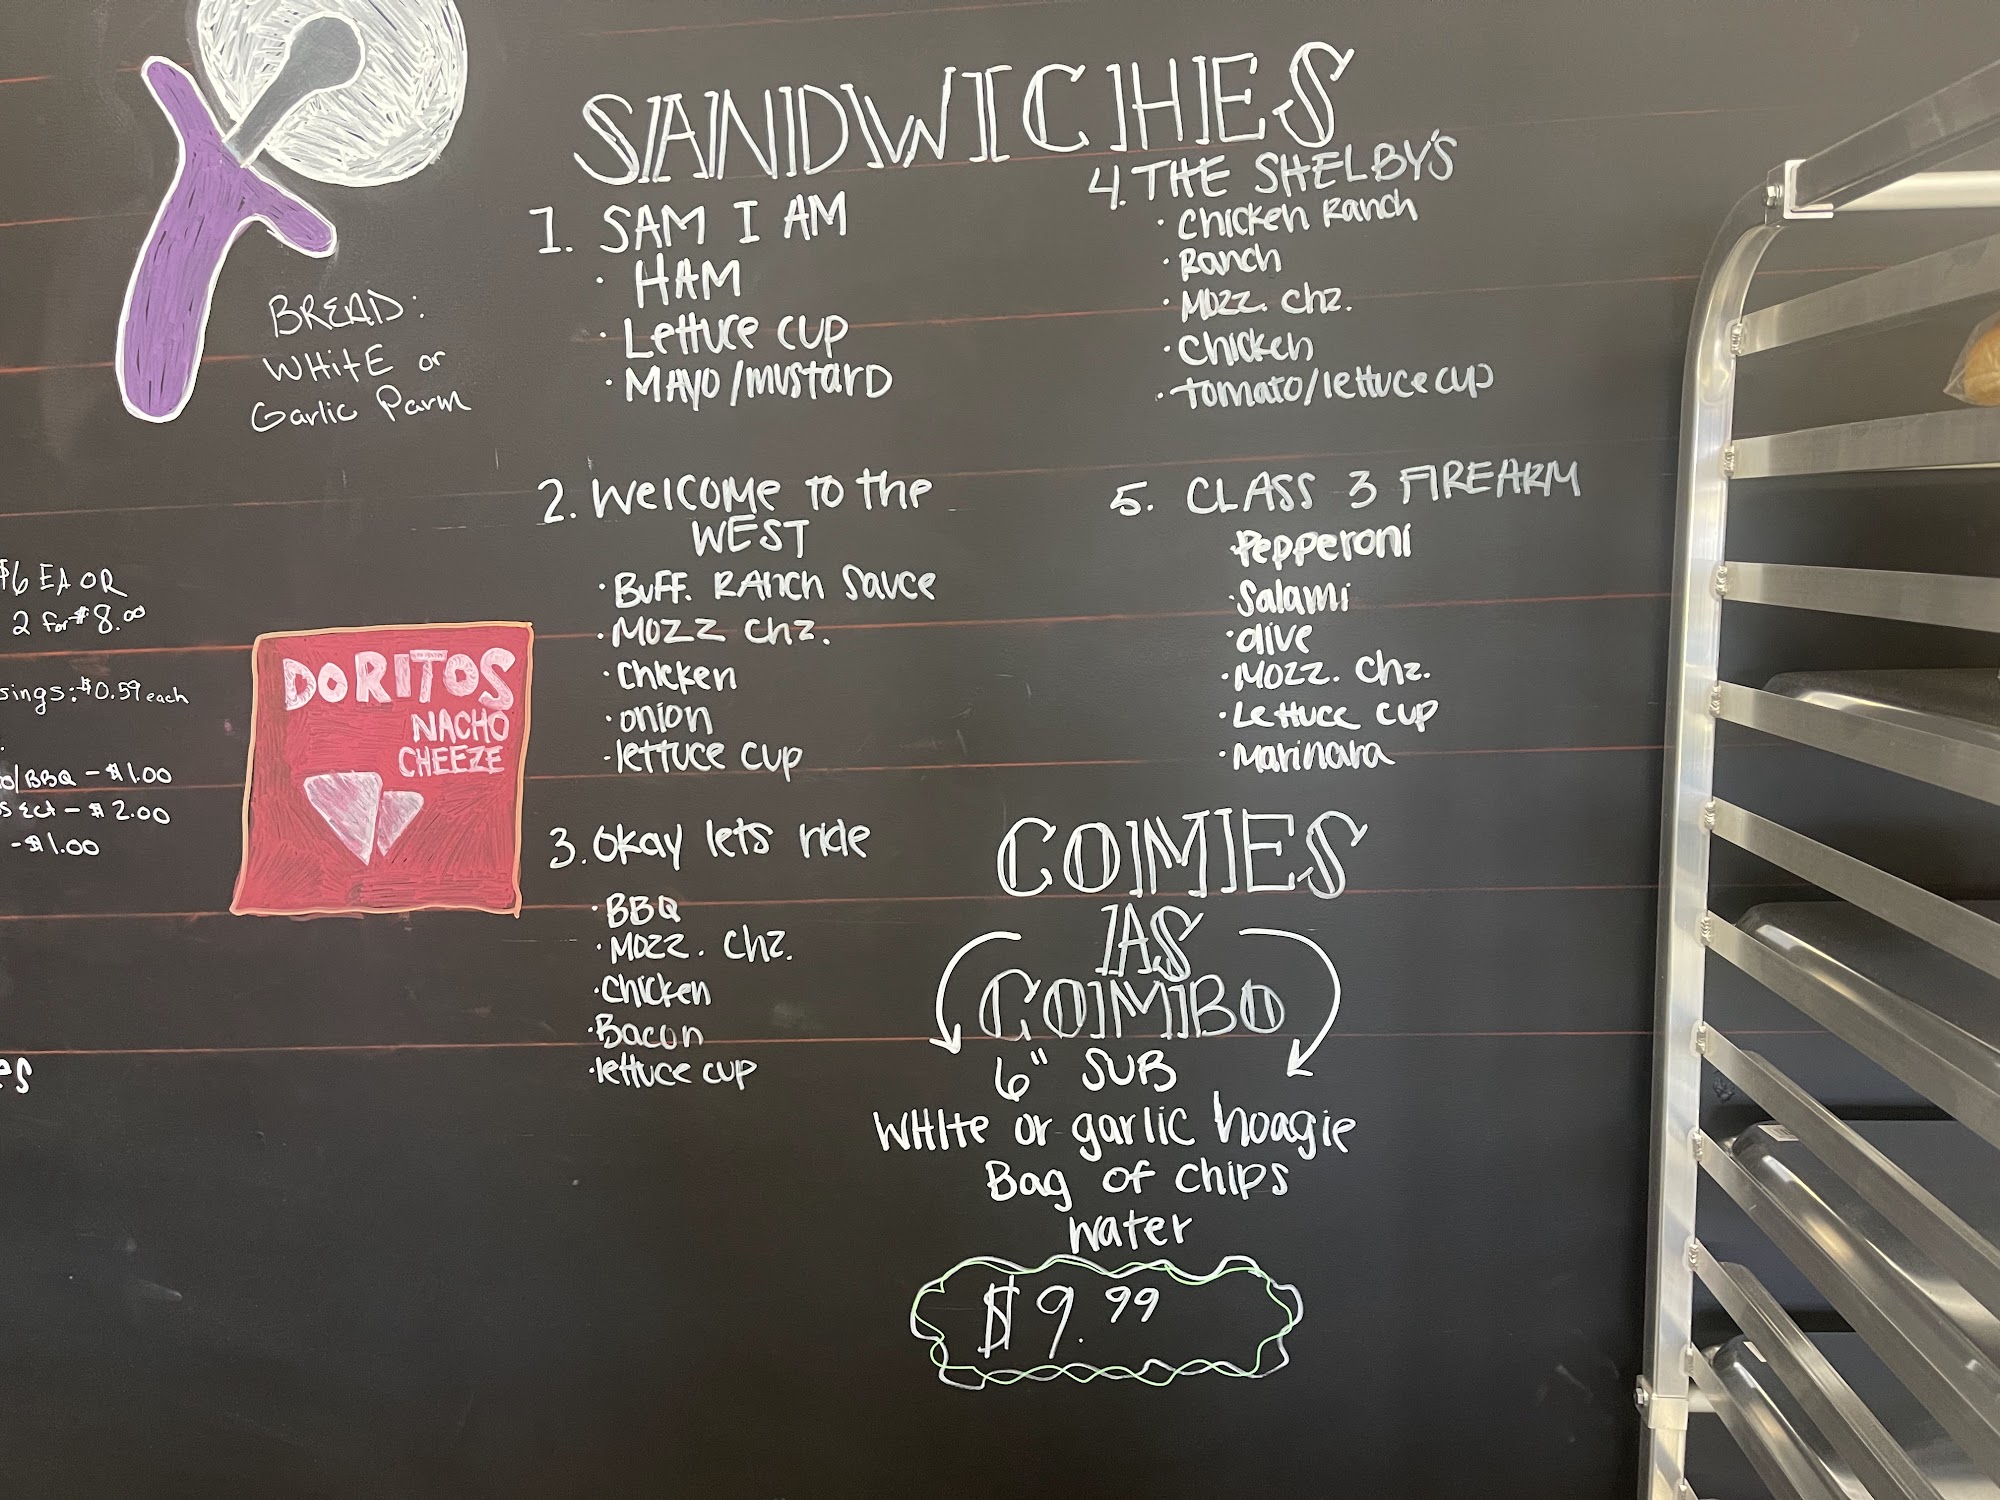 SANDWICHES
1. SAM I AM
· HAM
· Lettuce cup
· MAYO/mustard
2. Welcome to the
WEST
· Buff. Ranch Sauce
· Mozz chz.
· Chicken
· onion
· lettuce cup
3. Okay lets ride
· BBQ
· Mozz. Chz.
· Chicken
· Bacon
· lettuce cup
4. THE SHELBY'S
· Chicken Ranch
· Ranch
· Mozz. Chz.
· Chicken
· Tomato/lettuce cup
5. CLASS 3 FIREARM
· Pepperoni
· Salami
· olive
· Mozz. Chz.
· Lettuce cup
· Marinara
COMES
AS
COMBO
6" SUB
White or garlic hoagie
Bag of chips
water
$9.99
BREAD:
WHITE or
Garlic Parm
$6 EA OR
2 for $8.00
sings: $0.59 each
/BBQ - $1.00
Ect - $2.00
- $1.00
es
DORITOS
NACHO
CHEEZE